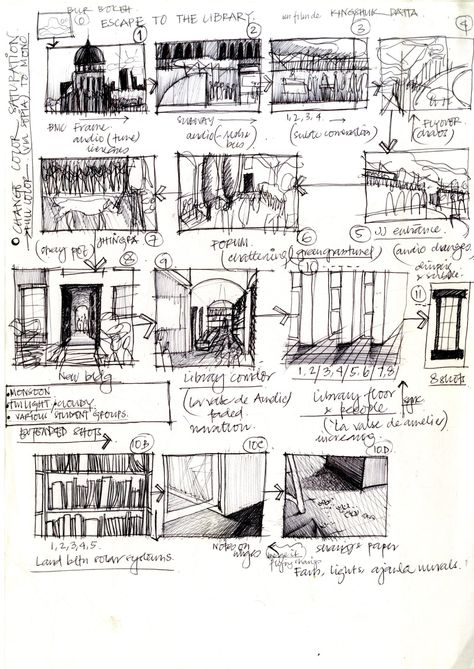 BLUR BOKEH
ESCAPE TO THE LIBRARY.
un film de KINGSHUK DATTA
CHANGE COLOR SATURATION
FULL COLOR (VIA SEPIA) TO MONO
1
2
3
4
BMC Frame
audio (tune)
increases
SUBWAY
audio (noise)
bus)
1, 2, 3, 4
(subtle conversation)
FLYOVER
(chaos)
7
6
5
(okay pot)
FORUM
(chattening) (green pastures)
JJ entrance.
(audio changes)
8
9
11
New bldg
Library corridor
(La valse de Amelie)
faded
narration.
1, 2, 3, 4, 5, 6, 7, 8
Library floor
& people
("La valse de amelies")
increasing
sync
8 shots
MONSOON
TWILIGHT & CLOUDY
VARIOUS STUDENT GROUPS.
EXTENDED SHOTS
10B
10C
10D
1, 2, 3, 4, 5.
Land btn solar systems.
Notes on
edges
shavings & paper
Fans, lights, ajanta murals.